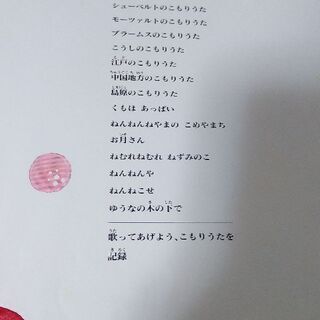 シューベルトのこもりうた
モーツァルトのこもりうた
ブラームスのこもりうた
こうしのこもりうた
江戸のこもりうた
中国地方のこもりうた
島原のこもりうた
くもは あっぱい
ねんねんねやまの こめやまち
お月さん
ねむれねむれ ねずみのこ
ねんねんや
ねんねこせ
ゆうなの木の下で
歌ってあげよう、こもりうたを
記録